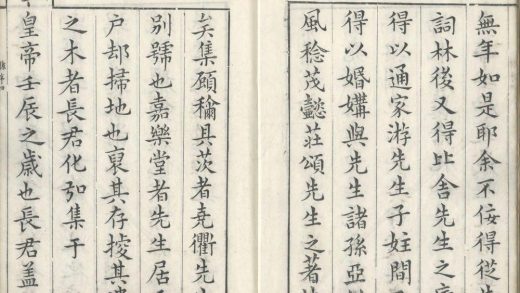 無年如是耶余不佞得從先
詞林後又得比舍先生之
得以通家游先生子姪間
得以婚媾與先生諸孫亞
風稔茂懿莊頌先生之著
矣集顏稱具茨者堯衢先
別號也嘉樂堂者先生居
户却掃地也裒其存摭其
之木者長君化弘集于
皇帝壬辰之歲也長君盖